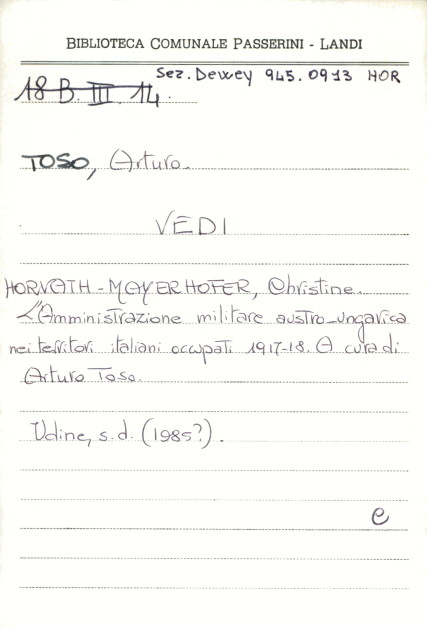 BIBLIOTECA COMUNALE PASSERINI - LANDI
Sez. Dewey 945.0913 HOR
18 B. III. 14.
TOSO, Arturo.
VEDI
HORVATH-MAYERHOFER, Christine.
L'Amministrazione militare austro-ungarica
nei territori italiani occupati 1917-18. A cura di
Arturo Toso.
Udine, s.d. (1985?).
e